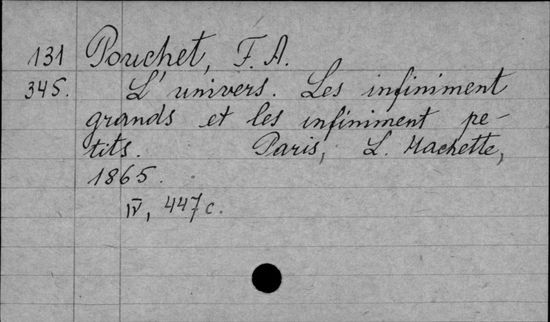 131 Pouchet, F. A.
345. L'univers. Les infiniment
grands et les infiniment pe-
tits. Paris, L. Hachette,
1865.
IV, 447 c.